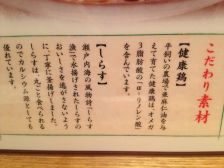 こだわり素材
【健康鶏】
平飼いの農場で亜麻仁油を
与えて育てた健康鶏は、オメガ
3脂肪酸の「α-リノレン酸」
を含んでいます。
【しらす】
瀬戸内海の風物詩、しらす
漁で水揚げされたしらすの
おいしさを逃がさないよう
に、丁寧に釜揚げしました。
しらすは、丸ごと食べられる
のでカルシウム源としても
優れています。